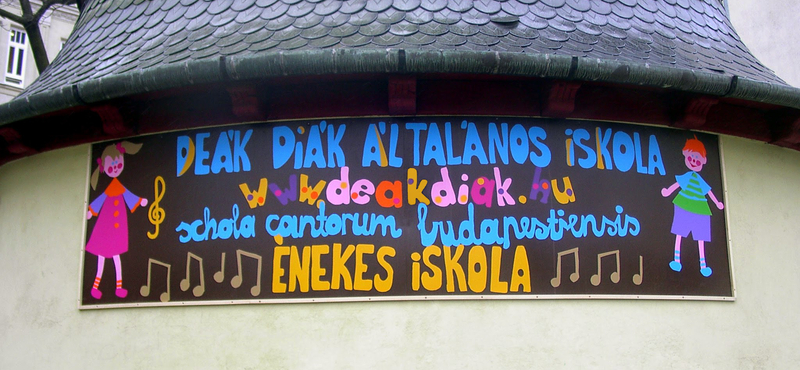 DEÁK DiÁK ÁLTALÁNOS iSKOLA
wwwdeakdiak.hu
schola cantorum budapestiensis
ÉNEKES iSKOLA